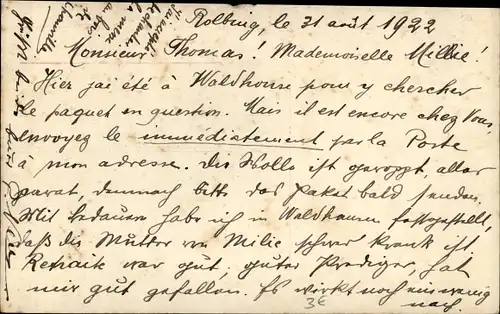 Rolbing, le 31 août 1922
Monsieur Thomas! Mademoiselle Millie!
Hier j'ai été à Waldhouse pour y chercher
le paquet en question. Mais il est encore chez Vous,
envoyez le immédiatement par la Poste
à mon adresse. Die Wolle ist geroppt, alles
parat, demnach bitte das Paket bald senden.
Mit bedauern habe ich in Waldhausen festgestellt,
daß die Mutter von Milie schwer krank ist.
Retraite war gut, guter Prediger, hat
mir gut gefallen. Es wirkt noch ein wenig
nach.
3€